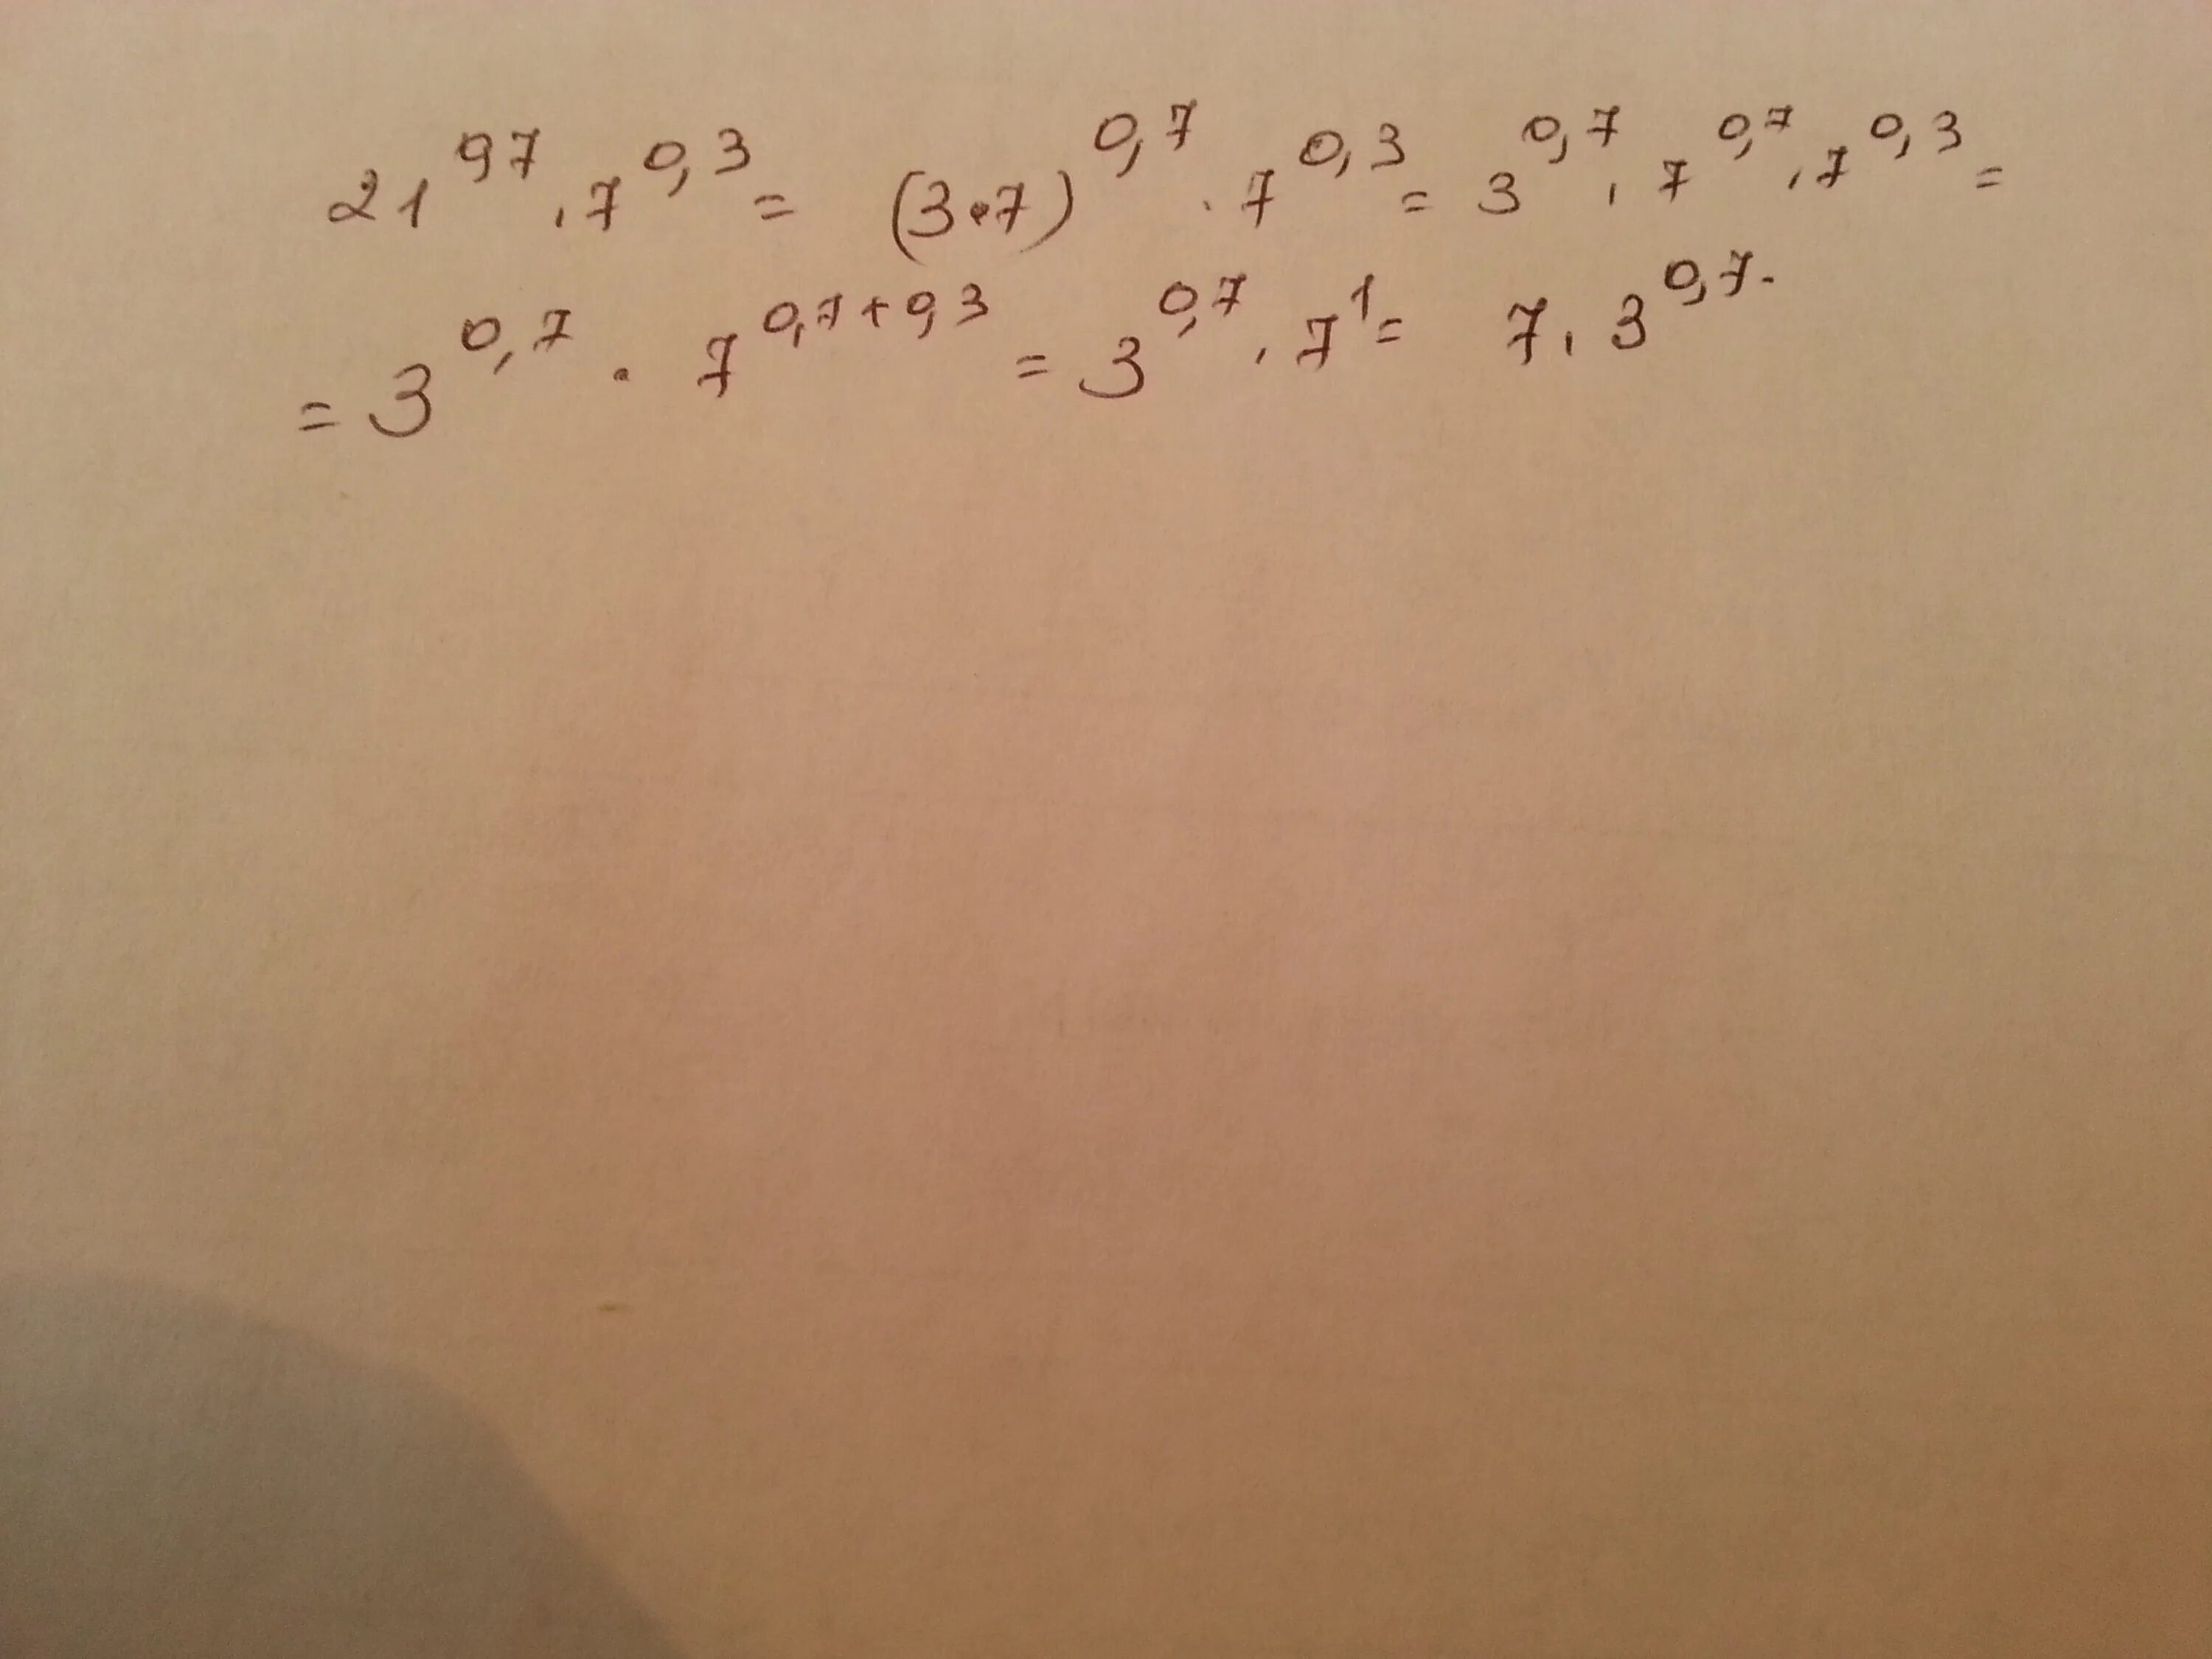 21^0,7 · 7^0,3 = (3·7)^0,7 · 7^0,3 = 3^0,7 · 7^0,7 · 7^0,3 =
= 3^0,7 · 7^0,7+0,3 = 3^0,7 · 7^1 = 7 · 3^0,7.